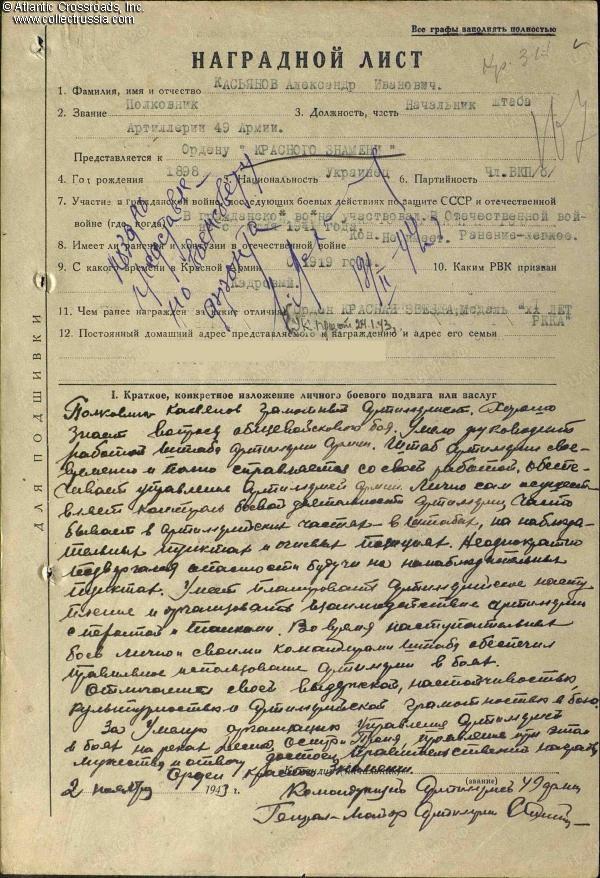 © Atlantic Crossroads, Inc.
www.collectrussia.com
Все графы заполнять полностью
НАГРАДНОЙ ЛИСТ
1. Фамилия, имя и отчество КАСЬЯНОВ Александр Иванович.
2. Звание Полковник 3. Должность, часть Начальник штаба
Артиллерии 49 Армии.
Представляется к Ордену " КРАСНОГО ЗНАМЕНИ "
4. Год рождения 1898 5. Национальность Украинец 6. Партийность Чл.ВКП/б/
7. Участие в гражданской войне, последующих боевых действиях по защите СССР и отечественной
войне (где, когда) В Гражданской войне участвовал. В Отечественной вой-
не с 1941 года.
8. Имеет ли ранения и контузии в отечественной войне Ранение-легкое.
9. С какого времени в Красной Армии С 1919 года. 10. Каким РВК призван
Кадровый.
11. Чем ранее награжден за какие отличия Орден КРАСНАЯ ЗВЕЗДА, Медаль "XX ЛЕТ
РККА"
12. Постоянный домашний адрес представляемого к награждению и адрес его семьи
ДЛЯ ПОДШИВКИ
I. Краткое, конкретное изложение личного боевого подвига или заслуг
Полковник Касьянов грамотный артиллерист. Хорошо
знает вопросы общевойскового боя. Умело руководит
работой штаба артиллерии Армии. Штаб артиллерии свое-
временно и полно справляется со своей работой, обеспе-
чивает управление артиллерией Армии. Лично сам осущест-
вляет контроль боевой деятельности артиллерии. Часто
бывает в артиллерийских частях - в штабах, на наблюда-
тельных пунктах и огневых позициях. Неоднократно
подвергался опасности будучи на наблюдательных
пунктах. Умеет планировать артиллерийское насту-
пление и организовать взаимодействие артиллерии
с пехотой и танками. Во время наступательных
боев лично и своими командирами штаба обеспечил
правильное использование артиллерии в боях.
Отличается своей выдержкой, настойчивостью
культурностью и артиллерийской грамотностью в бою.
За умелую организацию управления артиллерией
в боях на реках Десна, Сож и Проня проявленные при этом
мужество и отвагу достоин Правительственной награды
Орден Красного Знамени.
2 ноября 1943 г.
(звание)
Командующий Артиллерией 49 армии
Генерал-майор Артиллерии